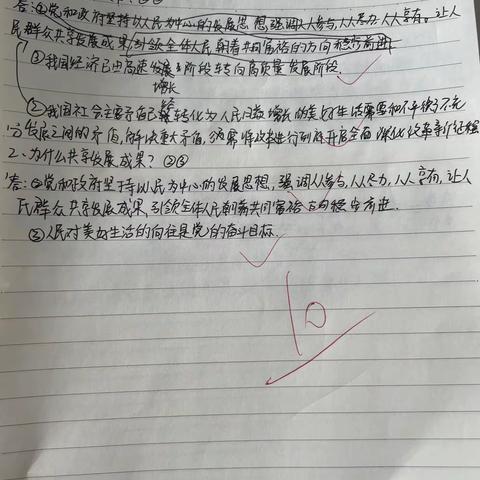 答:①党和政府坚持以人民为中心的发展思想,强调人人参与,人人尽力,人人享有。让人
民群众共享发展成果,引领全体人民朝着共同富裕的方向稳步前进
③我国经济已由高速发展阶段转向高质量发展阶段.
增长
②我国社会主要矛盾已经转化为人民日益增长的美好生活需要和不平衡不充
分发展之间的矛盾,解决重大矛盾,必须将改革进行到底开启全面深化改革新征程
2、为什么共享发展成果?②③
答:②党和政府坚持以人民为中心的发展思想,强调人人参与,人人尽力,人人享有,让人
民群众共享发展成果,引领全体人民朝着共同富裕方向稳步前进.
③人民对美好生活的向往是党的奋斗目标.
10